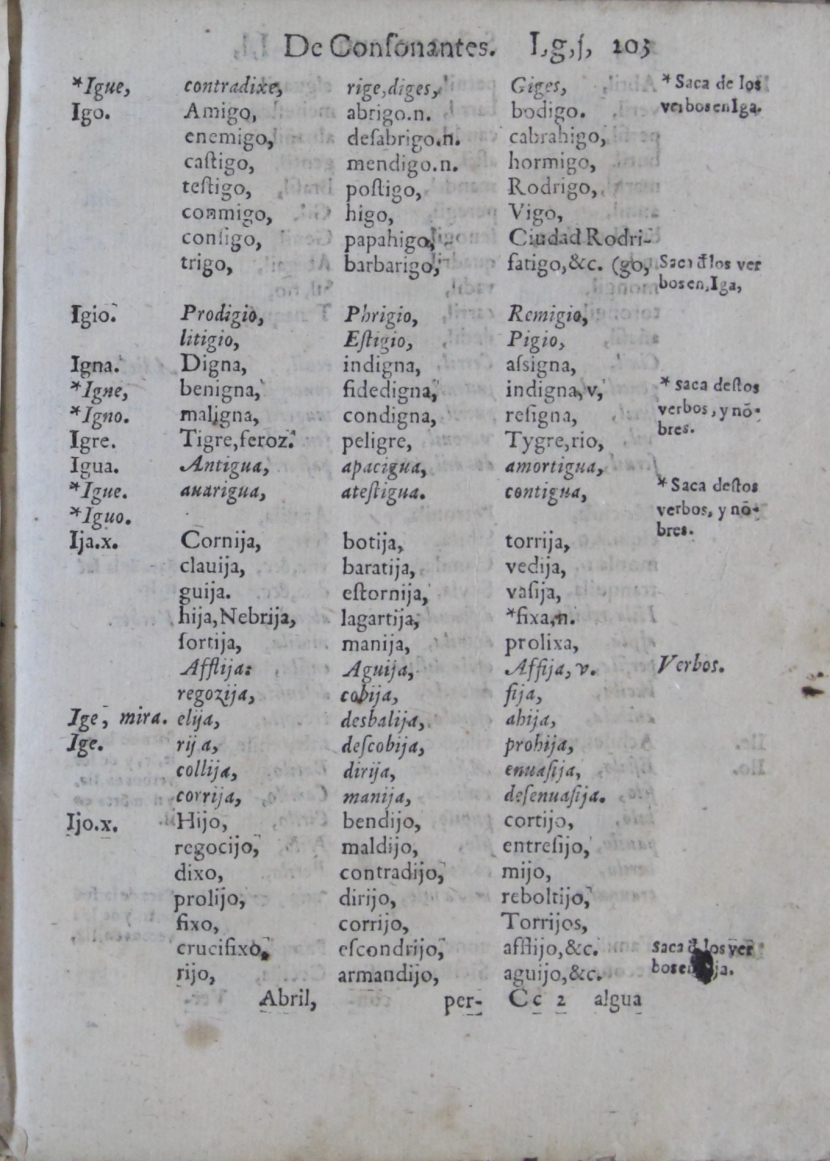 De Conſonantes. I,g,ſ, 103
*Igue, contradixe, rige,diges, Giges, *Saca de los
Igo. Amigo, abrigo.n. bodigo. verbos en Iga.
enemigo, deſabrigo.n. cabrahigo,
caſtigo, mendigo.n. hormigo,
teſtigo, poſtigo, Rodrigo,
conmigo, higo, Vigo,
conſigo, papahigo, Ciudad Rodri-
trigo, barbarigo, fatigo,&c. (go, Saca đ los ver
bos en,Iga,
Igio. Prodigio, Phrigio, Remigio,
litigio, Eſtigio, Pigio,
Igna. Digna, indigna, aſsigna,
*Igne, benigna, fidedigna, indigna,v, * saca deſtos
*Igno. maligna, condigna, reſigna, verbos,y nō-
Igre. Tigre,feroz. peligre, Tygre,rio, bres.
Igua. Antigua, apacigua, amortigua,
*Igue. auarigua, ateſtigua. contigua, * Saca deſtos
*Iguo. verbos, y nō-
Ija.x. Cornija, botija, torrija, bres.
clauija, baratija, vedija,
guija. eſtornija, vaſija,
hija,Nebrija, lagartija, *fixa,n.
ſortija, manija, prolixa,
Afflija: Aguija, Affija,v. Verbos.
regozija, cobija, fija,
Ige, mira. elija, desbalija, ahija,
Ige. rija, deſcobija, prohija,
collija, dirija, enuaſija,
corrija, manija, deſenuaſija.
Ijo.x. Hijo, bendijo, cortijo,
regocijo, maldijo, entreſijo,
dixo, contradijo, mijo,
prolijo, dirijo, reboltijo,
fixo, corrijo, Torrijos,
crucifixo, eſcondrijo, afflijo,&c. saca đ los ver
rijo, armandijo, aguijo,&c. bos en ja.
Abril, per- Cc 2 algua